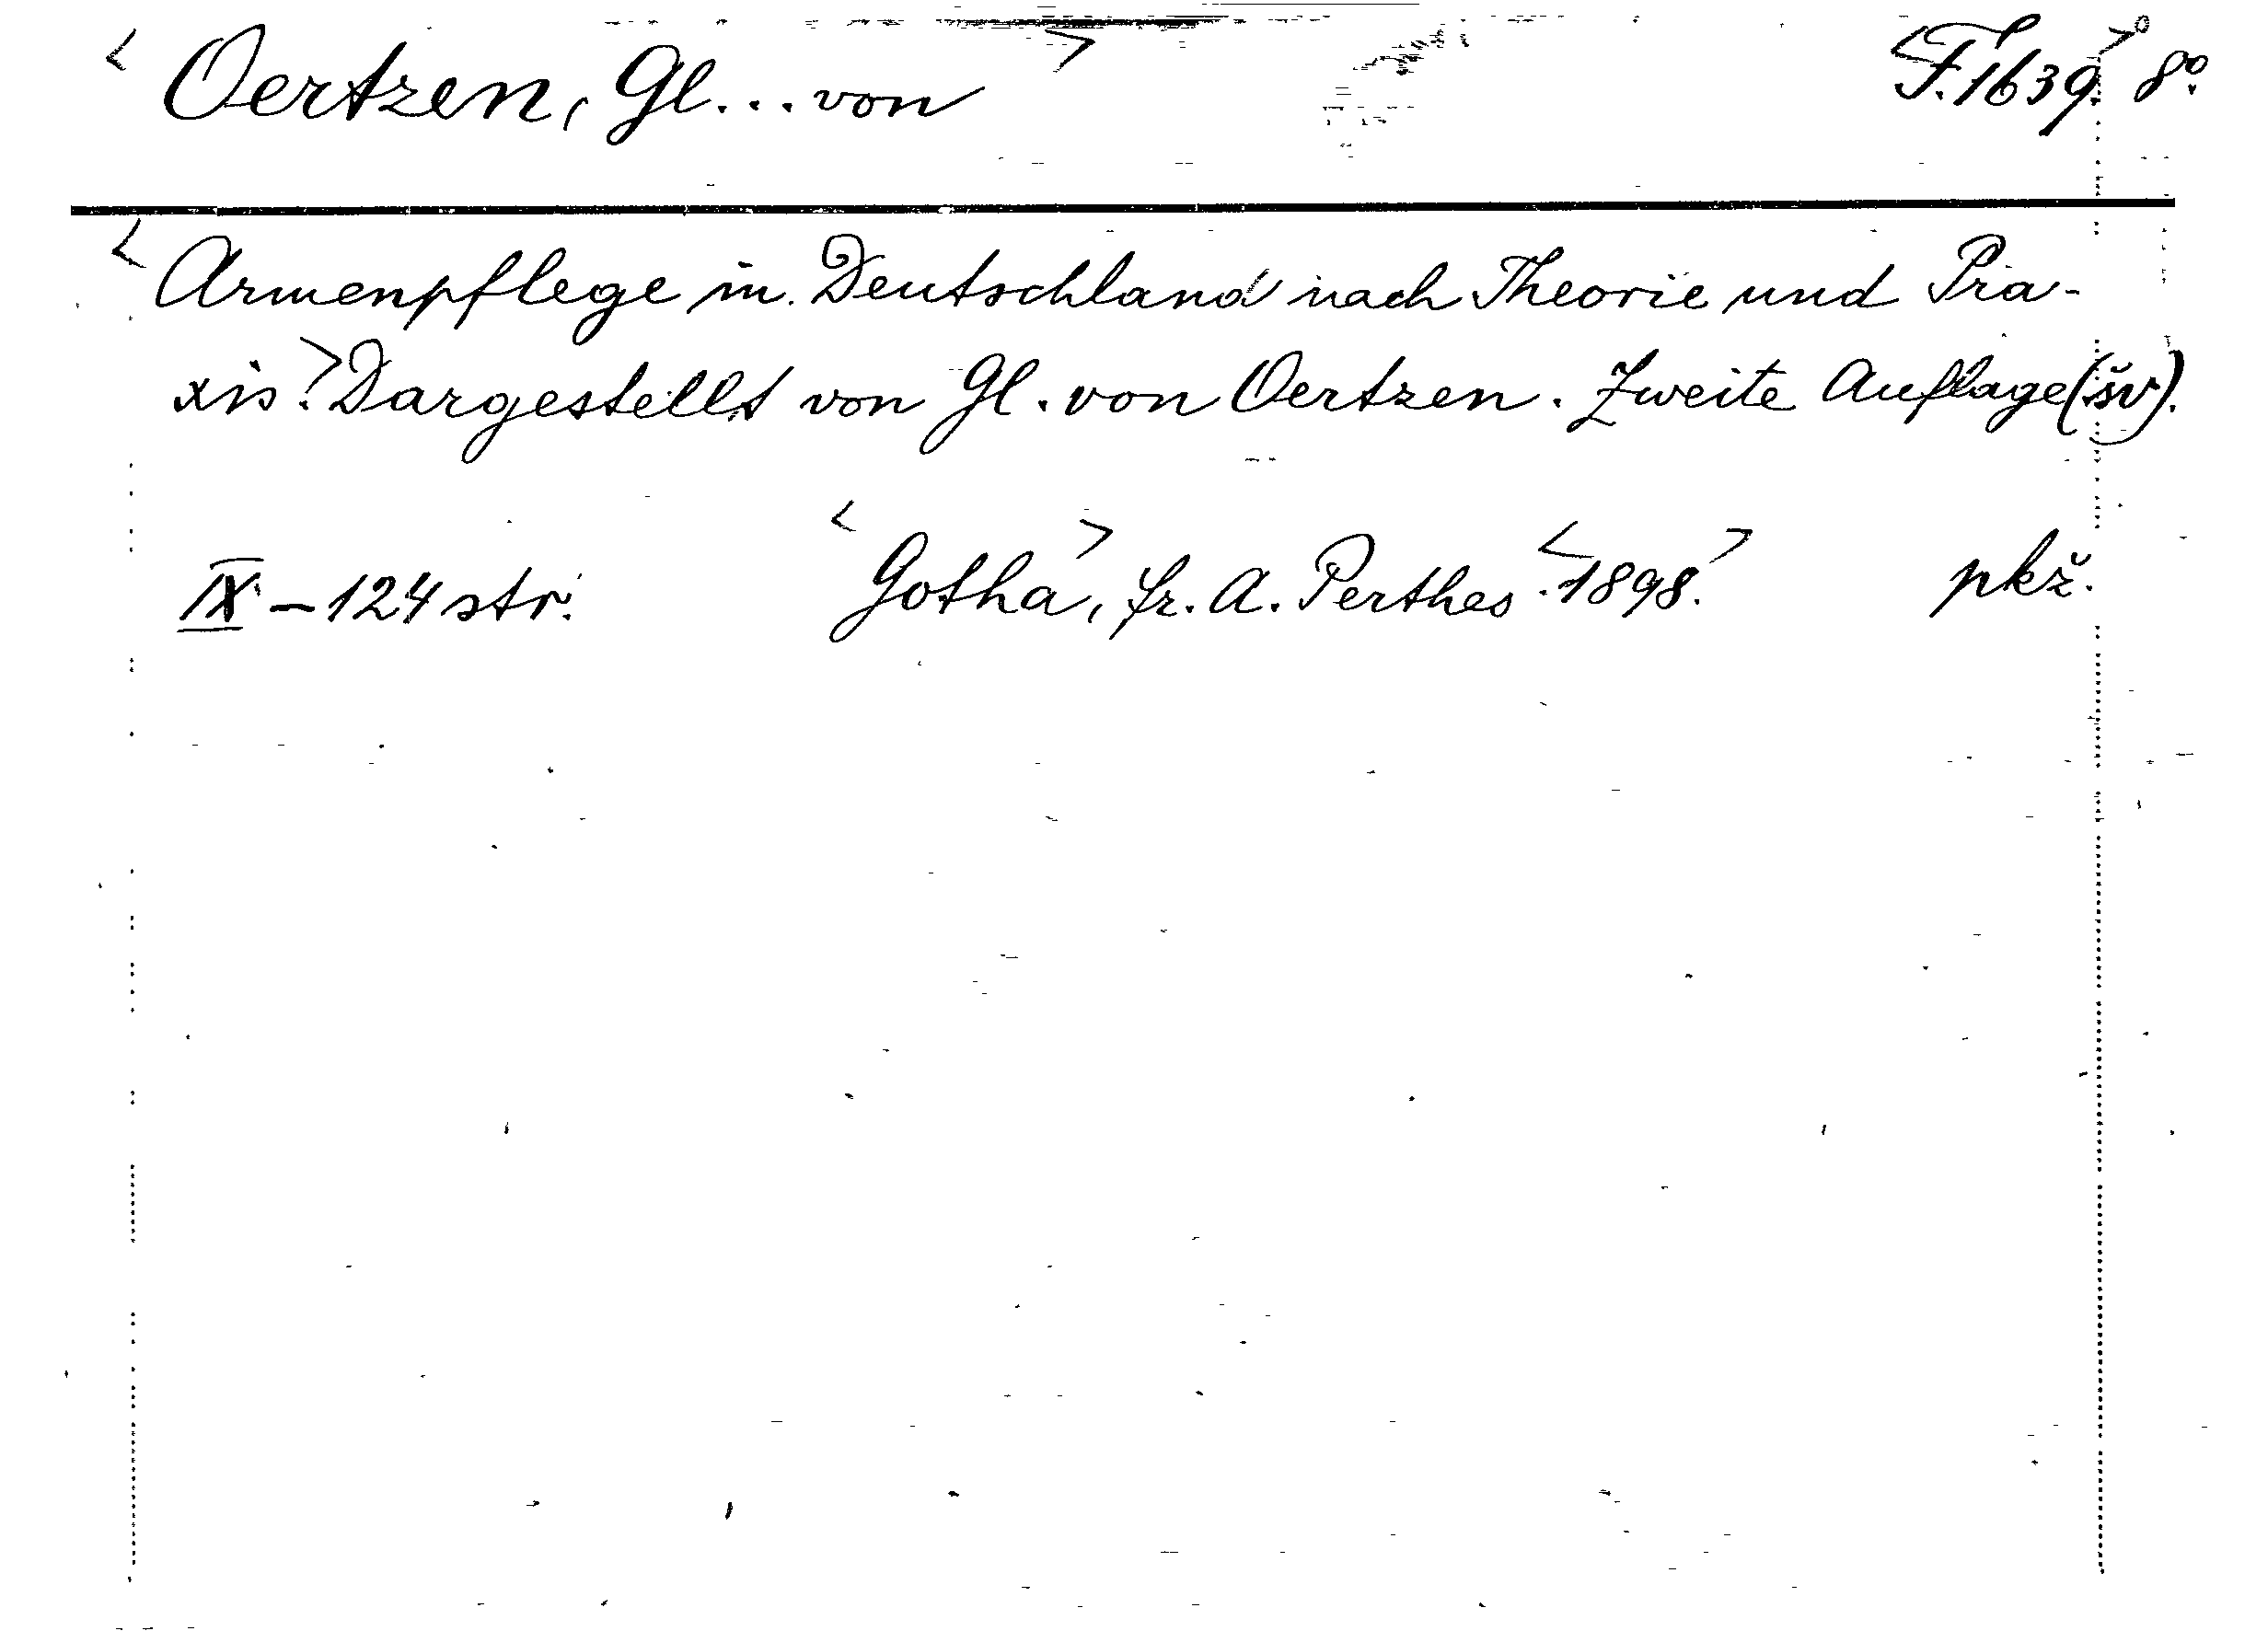 <Oertzen, Gl... von> <F. 1639.> 8°.
<Armenpflege in Deutschland nach Theorie und Pra-
xis.> Dargestellt von Gl. von Oertzen. Zweite Auflage (šv).
IX – 124 str. <Gotha>, Fr. A. Perthes. <1898.> pkž.